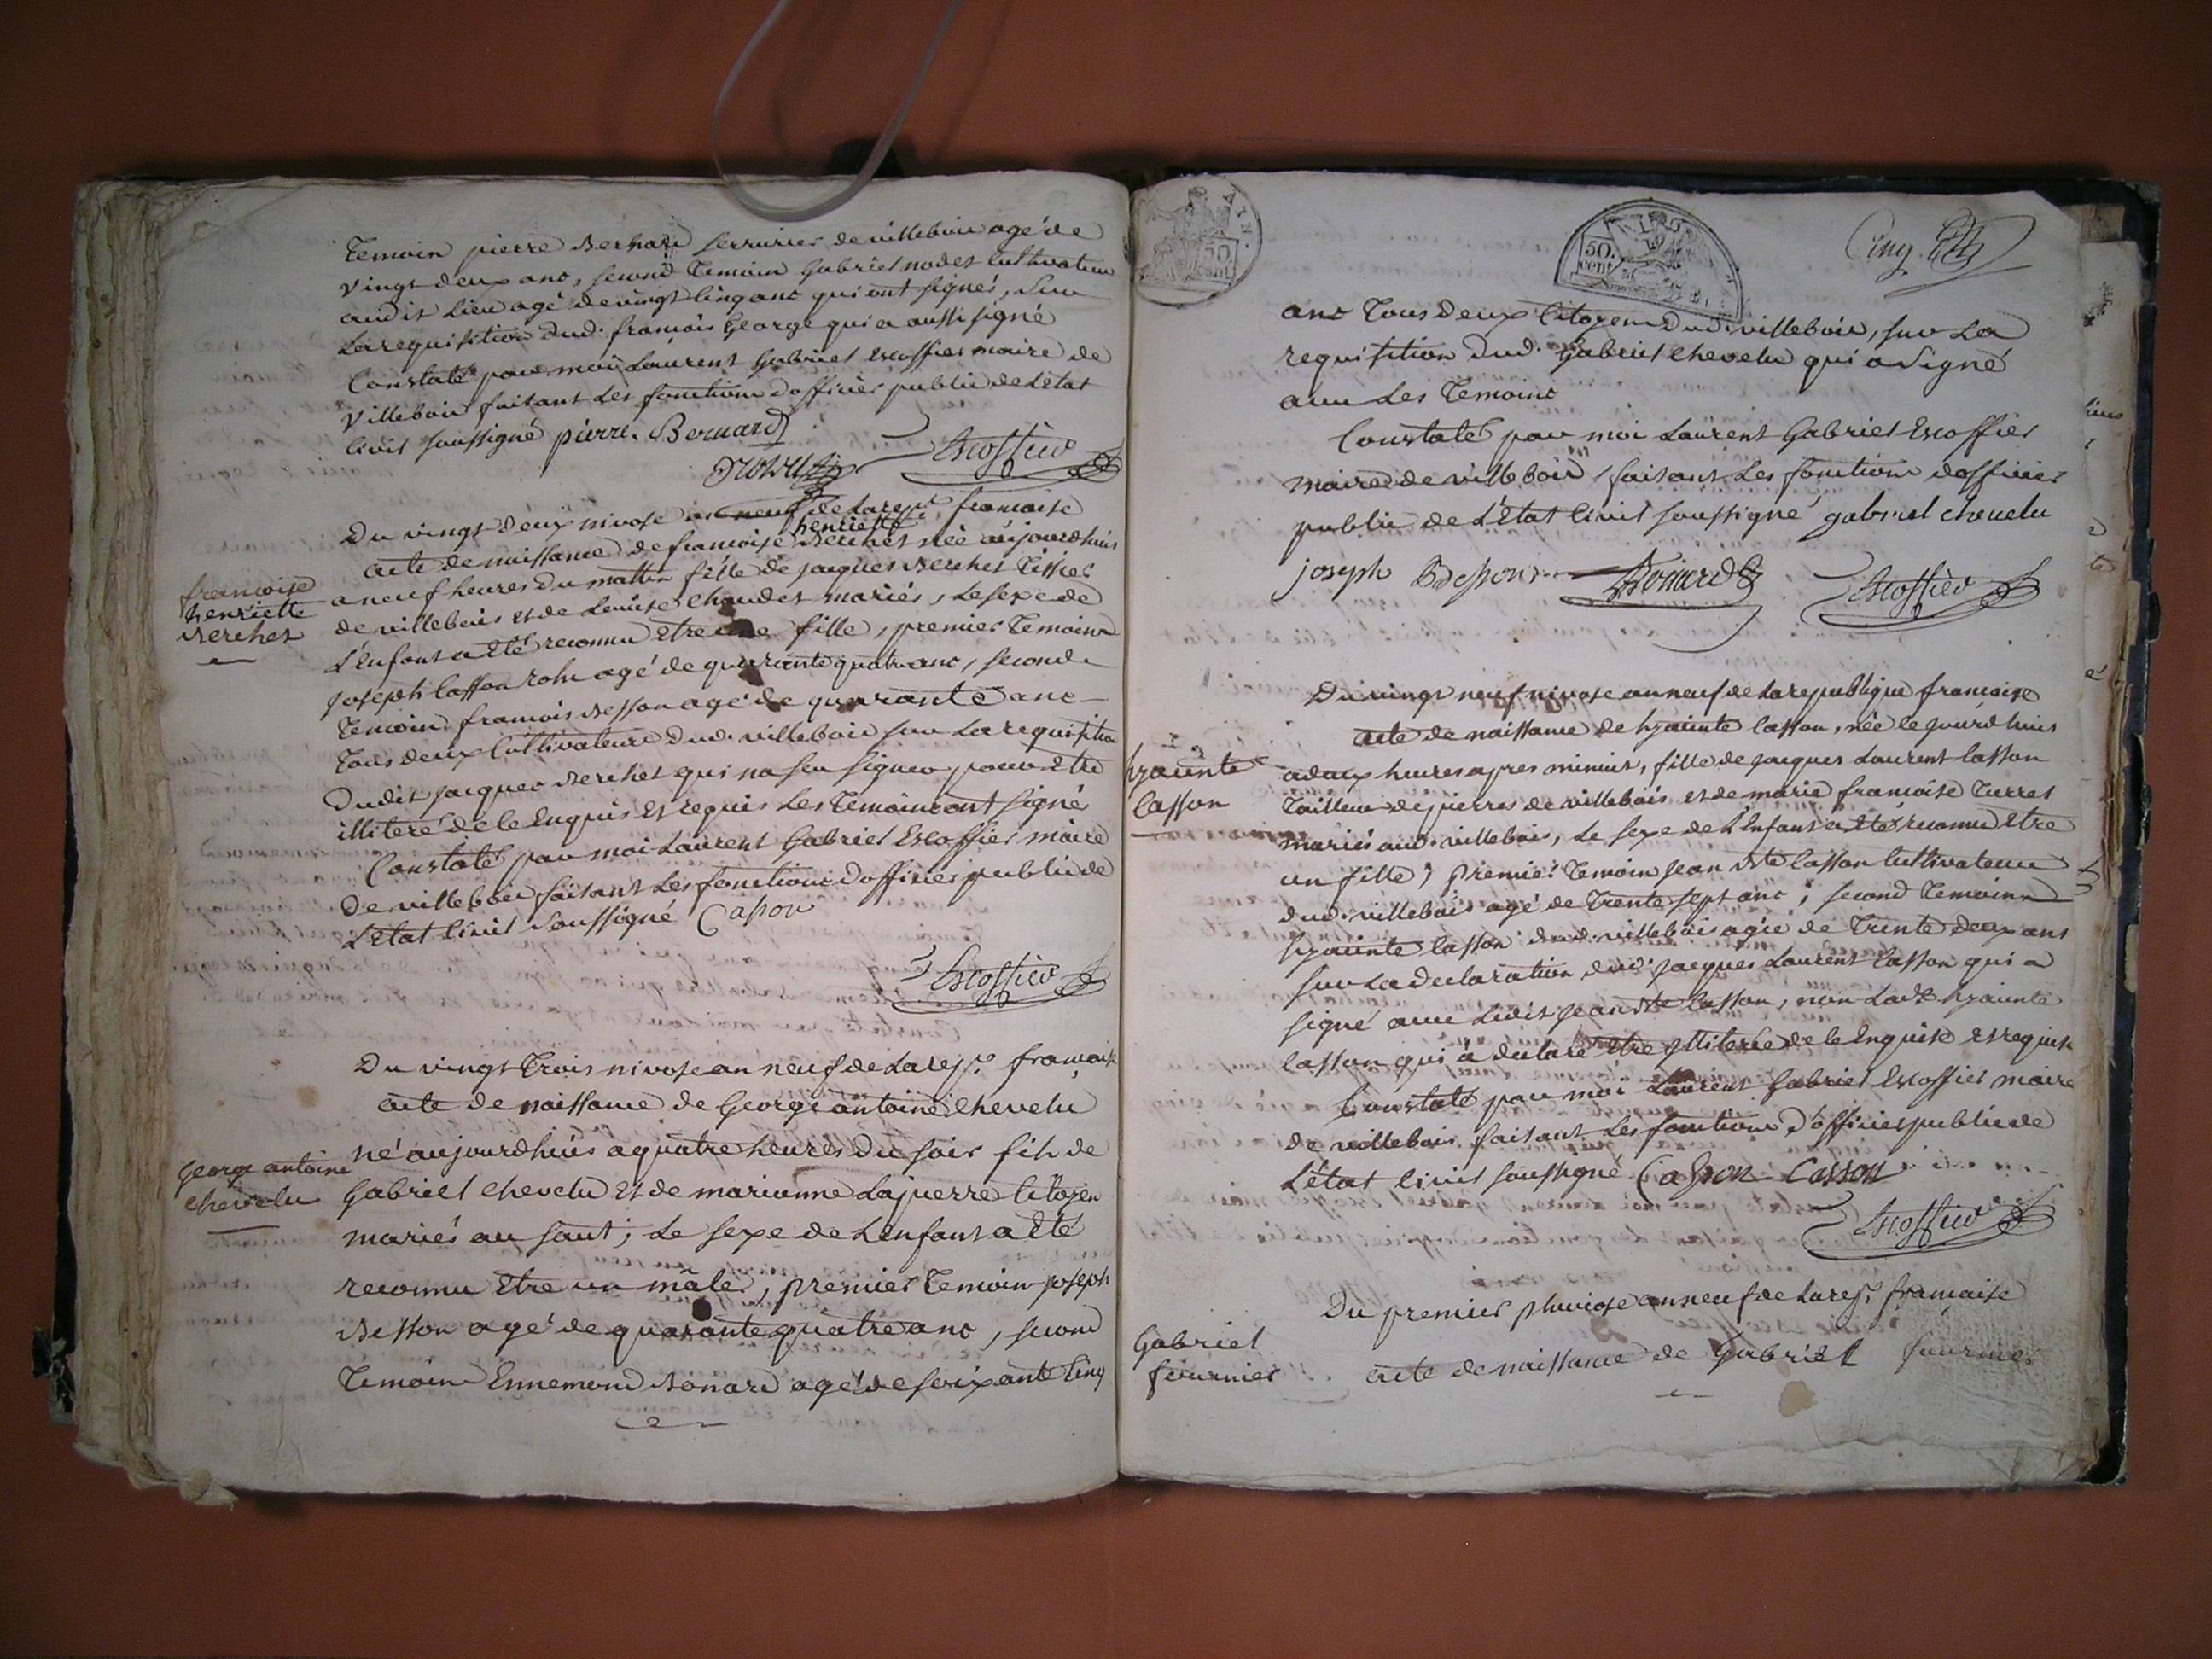 Temoin pierre Bernard serrurier de villebois agé de
vingt deux ans, second Temoin Gabriel nodet Cultivateur
audit Lieu agé de vingt cinq ans qui ont signés, sur
La requisition dud. françois George qui a aussi signé
Constaté par moi Laurent Gabriel Escoffier maire de
Villebois faisant Les fonctions d'officier public de L'état
Civil soussigné pierre Bernard
Escoffier
Du vingt deux nivose an neuf de La rep.e francaise
henriette
acte de naissance de francoise Berchet née aujourdhuis
francoise
henriette
Berchet
a neuf heures du mattin fille de jacques Berchet Tissier
de villebois et de Louise Chaudet mariés, Le sexe de
L'Enfant a Eté reconnu Etre une fille, premier Temoin
Joseph Casson agé de quarante quatre ans, second
Temoin francois Besson agé de quarante ans
Tous deux Cultivateurs dud. villebois sur La requisition
Dudit jacques Berchet qui na seu signer pour Etre
illiteré de le Enquis Et requis Les Temoins ont signé
Constaté par moi Laurent Gabriel Escoffier maire
de villebois faisant Les fonctions d'officier public de
L'Etat Civil soussigné Casson
Escoffier
Du vingt Trois nivose an neuf de La rep.e francaise
acte de naissance de George antoine Chevelu
né aujourdhuis a quatre heures du soir fils de
George antoine
Chevelu
Gabriel Chevelu Et de marianne Lapierre Citoyen
mariés au saut; Le sexe de L'enfant a Eté
reconnu Etre un mâle, premier Temoin joseph
Besson agé de quarante quatre ans, second
Temoin Ennemond Bonard agé de soixante Cinq
50 cent
Cinq
ans Tous deux Citoyens dud. villebois, sur La
requisition dud. Gabriel Chevelu qui a signé
avec Les Temoins
Constaté par moi Laurent Gabriel Escoffier
maire de villebois faisant Les fonctions d'officier
public de L'état Civil soussigné gabriel chevelu
joseph Besson Bonard Escoffier
Du vingt neuf nivose an neuf de La republique francaise
acte de naissance de hyacinte Casson, née Le jourdhuis
hyacinte
Casson
a deux heures apres minuit, fille de jacques Laurent Casson
Tailleur de pierres de villebois et de marie francoise Turret
mariés aud. villebois, Le sexe de L'Enfant a Eté reconnu Etre
un fille; Premier Temoin Jean Bte Casson Cultivateur
dud. villebois agé de Trente sept ans; second Temoin
hyacinte Casson dud. villebois agée de Trente deux ans
sur La declaration dud. jacques Laurent Casson qui a
signé avec Ledit Jean Bte Casson, non Lade hyacinte
Casson qui a declaré Etre illiterée de le Enquise Et requise
Constaté par moi Laurent Gabriel Escoffier maire
de villebois faisant Les fonctions d'officier public de
L'état Civil soussigné Casson Casson
Escoffier
Du premier pluviose an neuf de La rep.e francaise
Gabriel
fournier
acte de naissance de Gabriel fournier